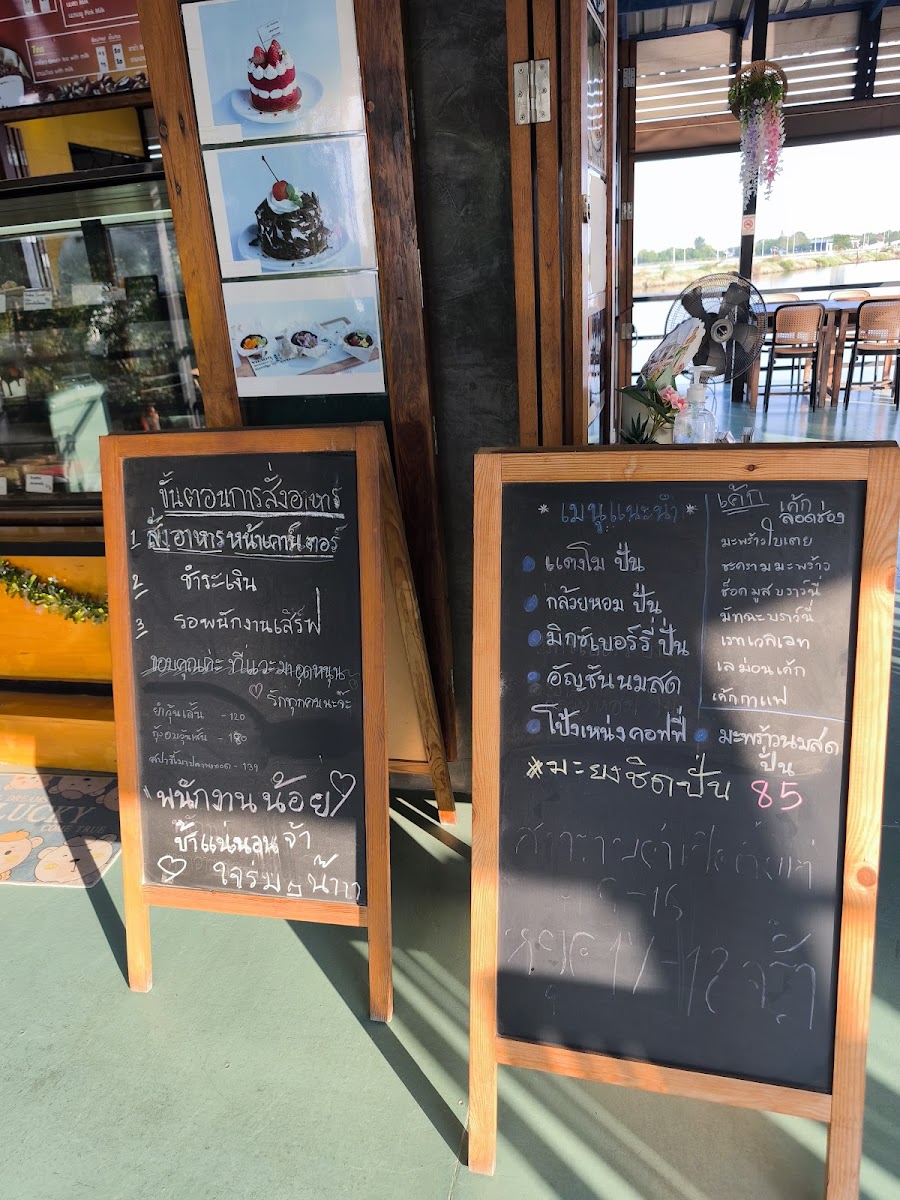 นมชมพู Pink Milk
ขั้นตอนการสั่งอาหาร
1 สั่งอาหารหน้าเคาน์เตอร์
2 ชำระเงิน
3 รอพนักงานเสิร์ฟ
ขอบคุณค่ะ ที่แวะมาอุดหนุน
รักทุกคนนะจ๊ะ
ยำวุ้นเส้น - 120
กุ้งอบวุ้นเส้น - 180
- 139
พนักงานน้อย
ช้าแน่นอนจ้า
ใจร่มๆ น้าาา
LUCKY
* เมนูแนะนำ *
แตงโม ปั่น
กล้วยหอม ปั่น
มิกซ์เบอร์รี่ ปั่น
อัญชันนมสด
โป้งเหน่งคอฟฟี่
มะพร้าวนมสด
ปั่น
*มะยงชิดปั่น 85
เค้ก
เค้ก
ลอดช่อง
มะพร้าวใบเตย
มะพร้าว
ช็อคมูสบราวนี่
มัทฉะบราวนี่
เรดเวลเวท
เลม่อนเค้ก
เค้กกาแฟ